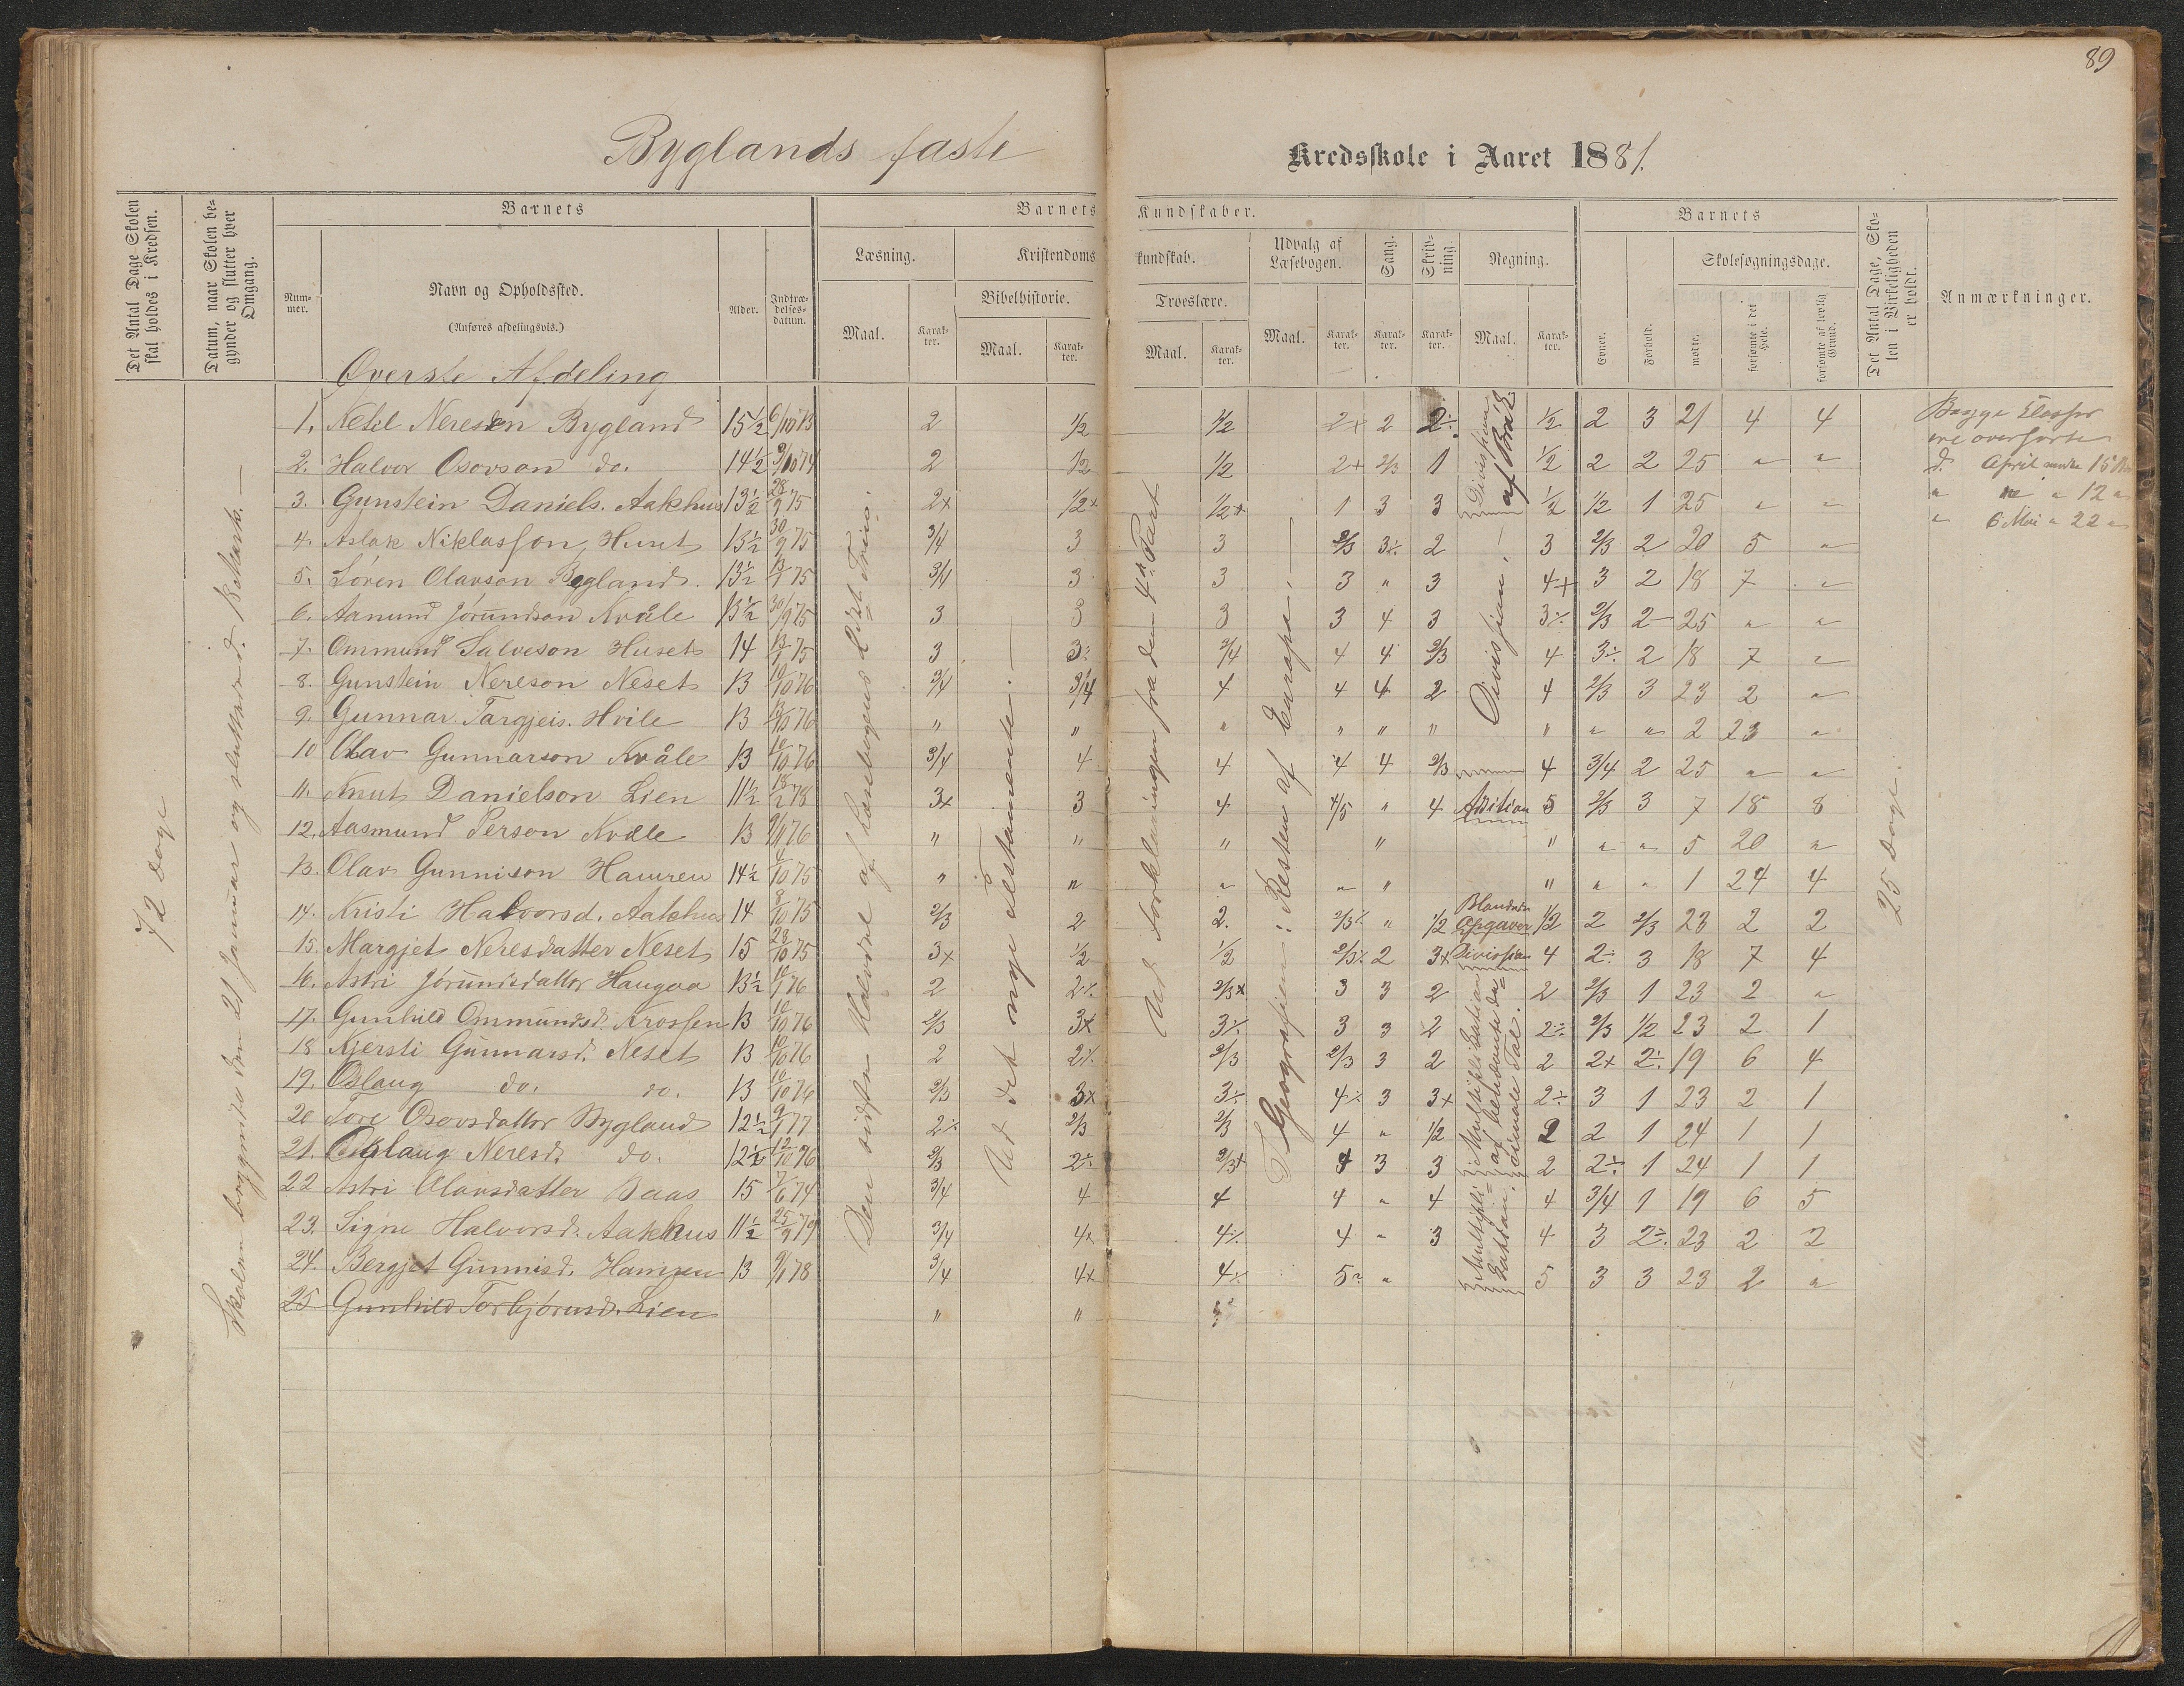 89
Byglands faste Kredsskole i Aaret 1881.
Det Antal Dage Skolen skal holdes i Kredsen.
Datum, naar Skolen begynder og slutter hver Omgang.
Barnets
Nummer.
Navn og Opholdssted.
(Anføres afdelingsvis.)
Alder.
Indtrædelsesdatum.
Barnets Kundskaber.
Læsning.
Maal.
Karakter.
Kristendomskundskab.
Bibelhistorie.
Maal.
Karakter.
Troeslære.
Maal.
Karakter.
Udvalg af Læsebogen.
Maal.
Karakter.
Sang.
Karakter.
Skrivning.
Karakter.
Regning.
Maal.
Karakter.
Barnets
Evner.
Forhold.
Skolesøgningsdage.
mødte.
forsømte i det Hele.
forsømte af lovlig Grund.
Det Antal Dage, Skolen i Virkeligheden er holdt.
Anmærkninger.
72 Dage
Skolen begyndte den 21 Januar og sluttede d.
Øverste Afdeling
1. Ketil Neresen Bygland 15½ 6/10 73 2 1/2 1/2 2+ 2 2÷ 1/2 2 3 21 4 4
2. Halvor Osovson do. 14½ 9/10 74 2 1/2 1/2 2+ 2/3 1 1/2 2 2 25 " "
3. Gunstein Daniels. Aakhus 13½ 28/9 75 2+ 1/2+ 1/2+ 1 3 3 1/2 1/2 1 25 " "
4. Aslak Niklasson Huset 13½ 30/9 75 3/4 3 3 2/3 3÷ 2 3 2/3 2 20 5 "
5. Søren Olavson Bygland. 13½ 75 3/4 3 3 3 " 3 4+ 3 2 18 7 "
6. Aanund Jørundson Kvåle 13½ 30/9 75 3 3 3 3 4 3 3÷ 2/3 2 25 " "
7. Ommund Salveson Huset 14 75 3 3÷ 3/4 4 4 2/3 4 3÷ 2 18 7 "
8. Gunstein Nereson Neset 13 10/10 76 3/4 3/4 4 4 4 2 4 2/3 3 23 2 "
9. Gunnar Targjeis. Hvile 13 76 " " " " " " " " " 2 23 "
10 Olav Gunnarson Kvåle 13 10/10 76 3/4 4 4 4 4 2/3 4 3/4 2 25 " "
11. Knut Danielson Lien 11½ 18/2 78 3+ 3 4 4/5 " 4 Adition 5 2/3 3 7 18 8
12. Aasmund Person Kvåle 13 76 " " " " " " " 5 20 "
13. Olav Gunnison Hamren 14½ 4/10 75 " " " " " " " " 1 24 4
14. Kristi Halvorsd. Aakhus 14 8/10 75 2/3 2 2. 2/3÷ " 1/2 Blandede Opgaver 1/2 2 2/3 23 2 2
15. Margjet Neresdatter Neset 15 28/10 75 3+ 1/2 1/2 2/3÷ 2 3+ Division 4 2÷ 3 18 7 4
16. Astri Jørundsdatter Haugaa 13½ 76 2 2÷ 2/3+ 3 3 2 2 2/3 1 23 2 "
17. Gunhild Ommundsd. Krossen 13 10/10 76 2/3 3+ 3÷ 3 3 2 2÷ 2/3 1/2 23 2 1
18 Kjersti Gunnarsd. Neset 13 10/10 76 2 2÷ 2/3 2/3 3 2 2 2+ 2÷ 19 6 4
19. Oslaug do. do. 13 10/10 76 2/3 3+ 3÷ 4÷ 3 3+ 2÷ 3 1 23 2 1
20 Tore Osovsdatter Bygland 12½ 77 2÷ 2/3 2/3 4 " 1/2 2 2 1 24 1 1
21. Neresd. do. 12½ 12/10 76 2/3 2÷ 2/3+ 4 3 3 2 2÷ 1 24 1 1
22 Astri Olavsdatter Baas 15 74 3/4 4 4 4 " 4 4 3/4 1 19 6 5
23. Signe Halvorsd. Aakhus 11½ 25/9 79 3/4 4+ 4÷ 4 " 3 4 3 2÷ 23 2 2
24. Bergjet Gunnisd. Hamren 13 78 3/4 4+ 4÷ 5 " 5 3 3 23 2 "
25. Gunhild Torbjørnsd. Lien " "
Den sidste Halvdel af Læsebogens
Ud det nye Testamente. —
Ud Forklaringen fra den 4de Part
I Geografien: Resten af Europa. —
Division af Brøk
Division.
Multiplikation af benævnte decimale Tal.
Multiplikation.
25 Dage.
Begge Klasser
ere overførte
d. April 15
" " 12 "
" 6 Mai " 22 "